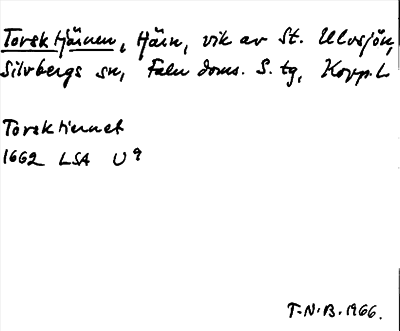 Torsktjärnen, tjärn, vik av St. Ulvsjön,
Silvbergs sn, Falu doms. S. tg, Kopp.L
Torsktiernet
1662 LSA U 9
T-N.B. 1966.